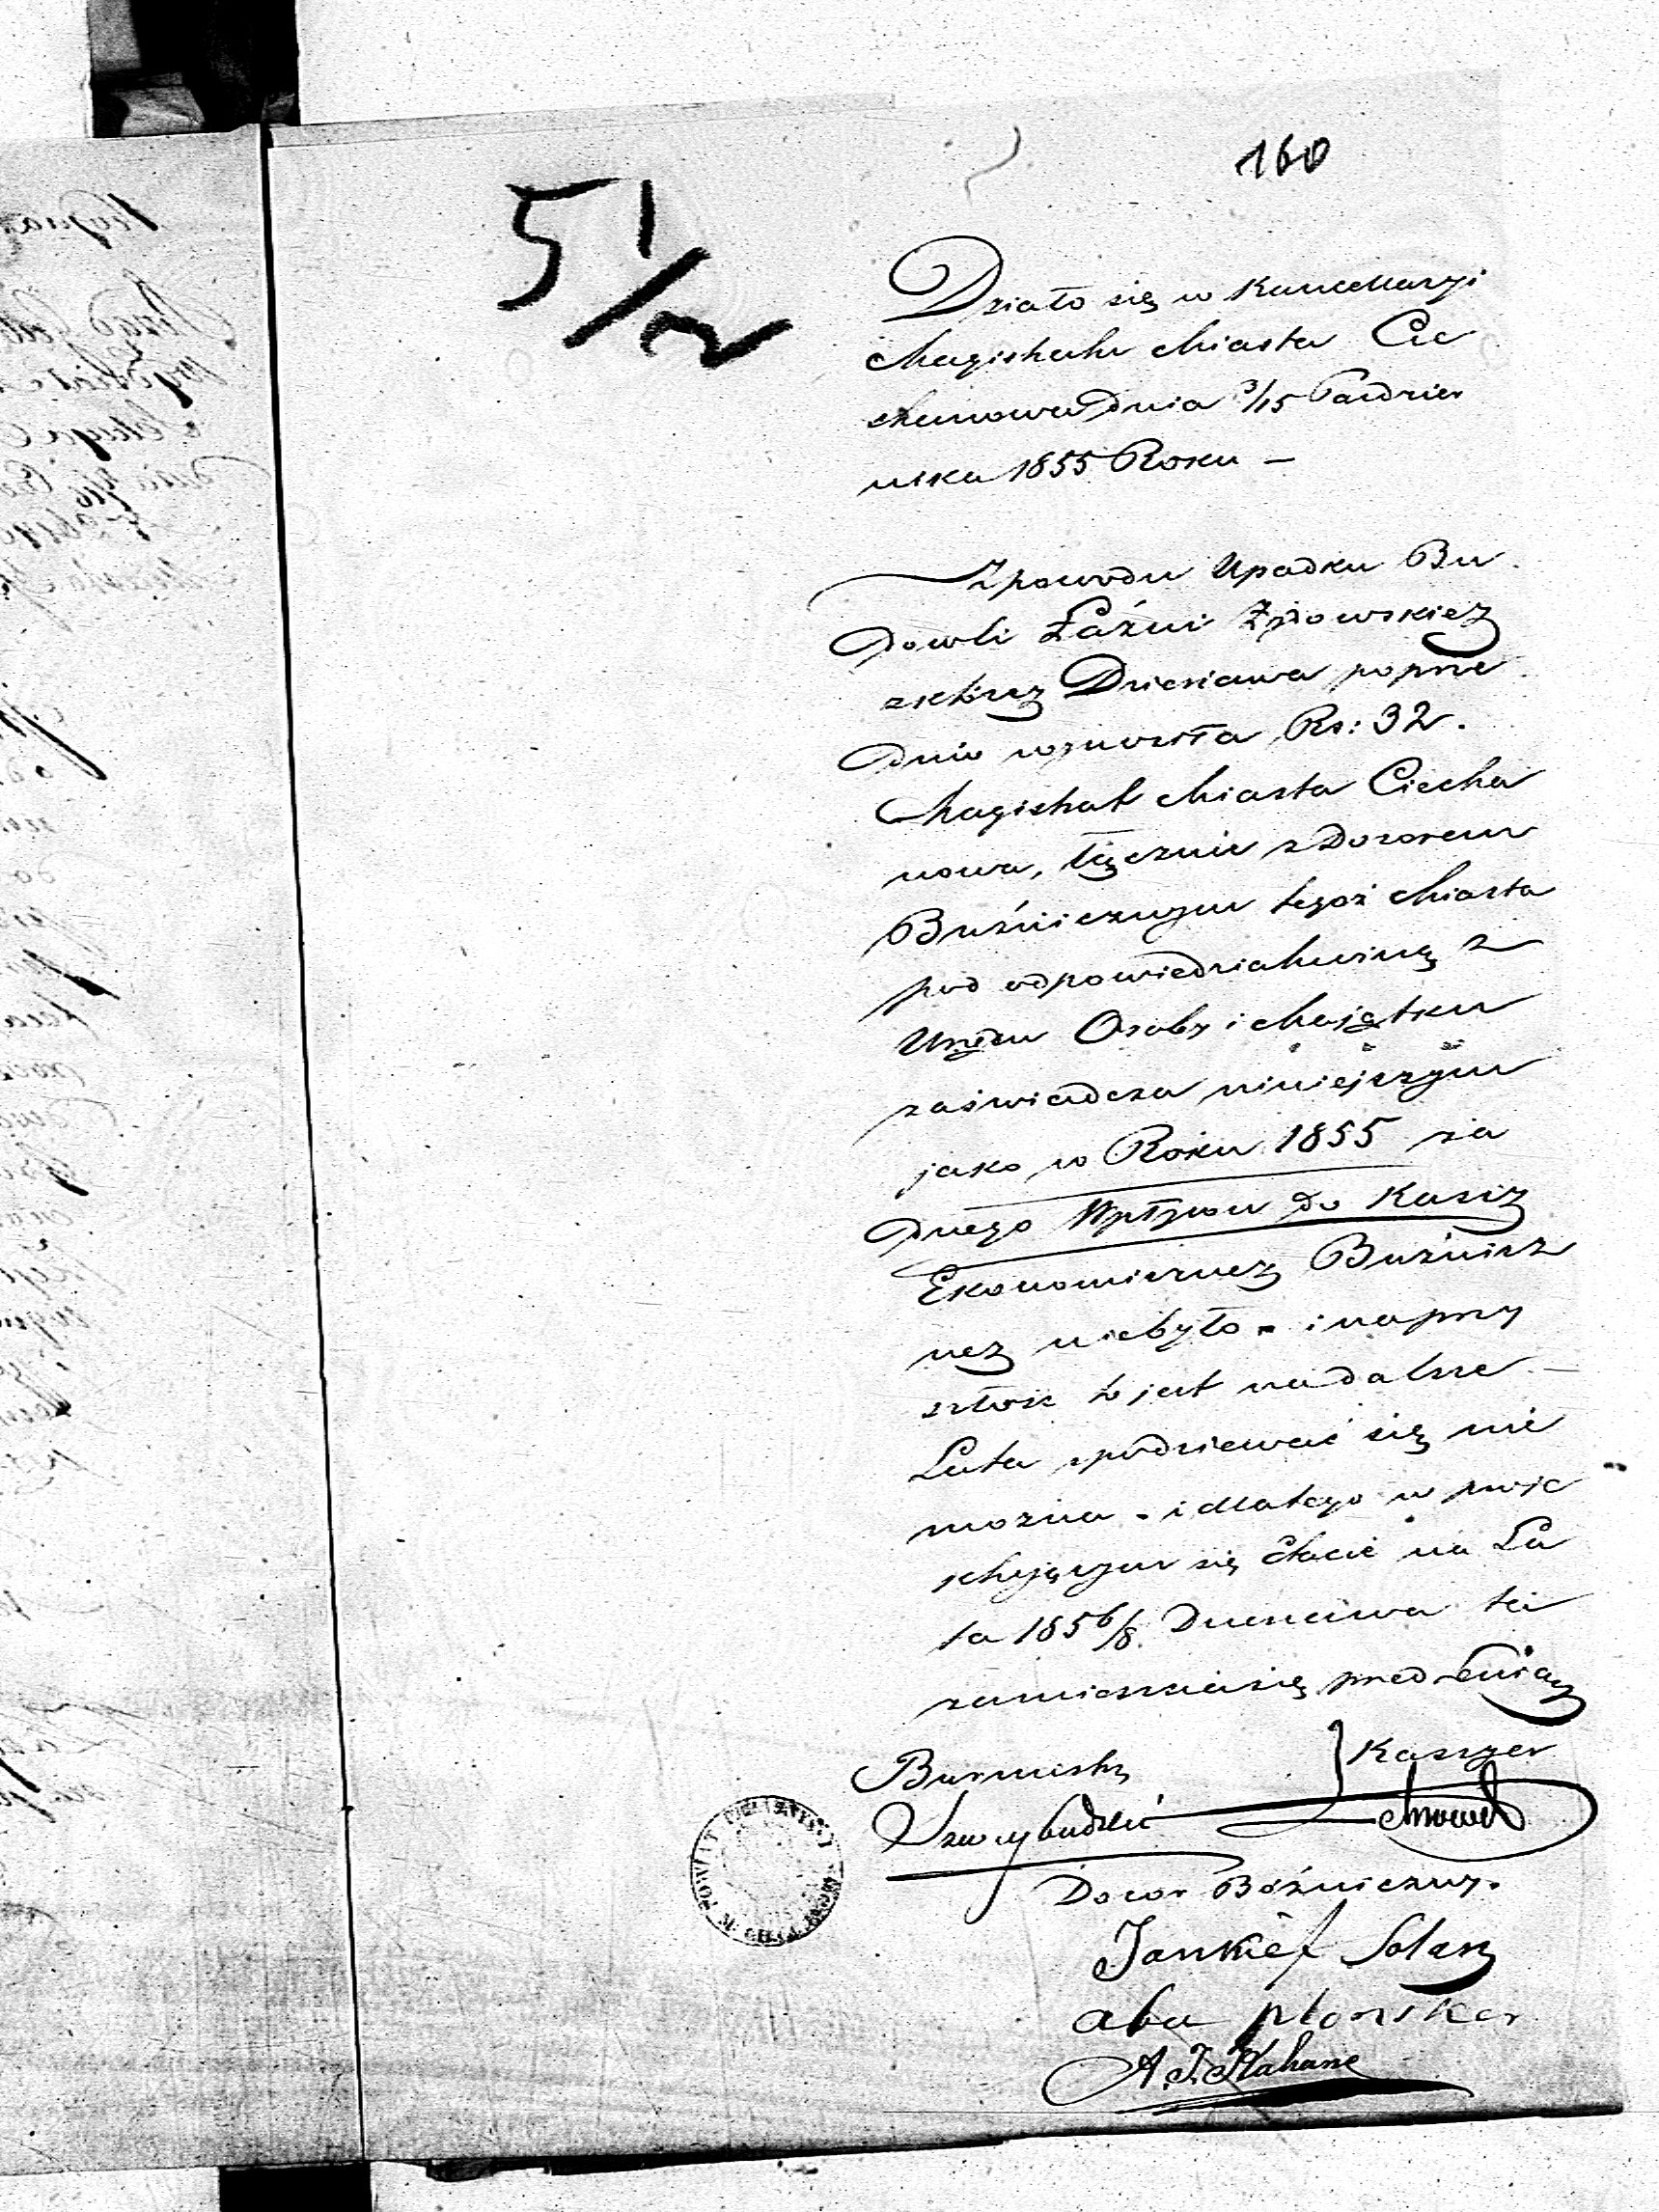 160
5 1/2
Działo się w Kancellaryi
Magistratu Miasta Cie
chanowa Dnia 3/15 Paździer
nika 1855 Roku –
Z powodu Upadku Bu
dowli Łaźni Żydowskiey
z którey Dzierżawa poprze
dnio wynosiła Rs: 32.
Magistrat Miasta Ciecha
nowa, łącznie z Dozorem
Bużnicznym tegoż Miasta
pod odpowiedzialnością z
Urzędu Osoby i Majątku
zaświadcza niniejszym
jako w Roku 1855 ża
dnego Wpływu do Kassy
Ekonomiczney Bużnicz
ney niebyło. i na przy
szłość to jest na dalsze –
Lata spodziewać się nie
można. i dlatego w proje
ktującym się Etacie na La
ta 1856/8. Dzierżawa ta
zamieszcza się przed Linią
Burmistrz
Kassyer
Dozor Bóźniczny.
Jankief Solarz
aba plonsker
A. J. Kahane